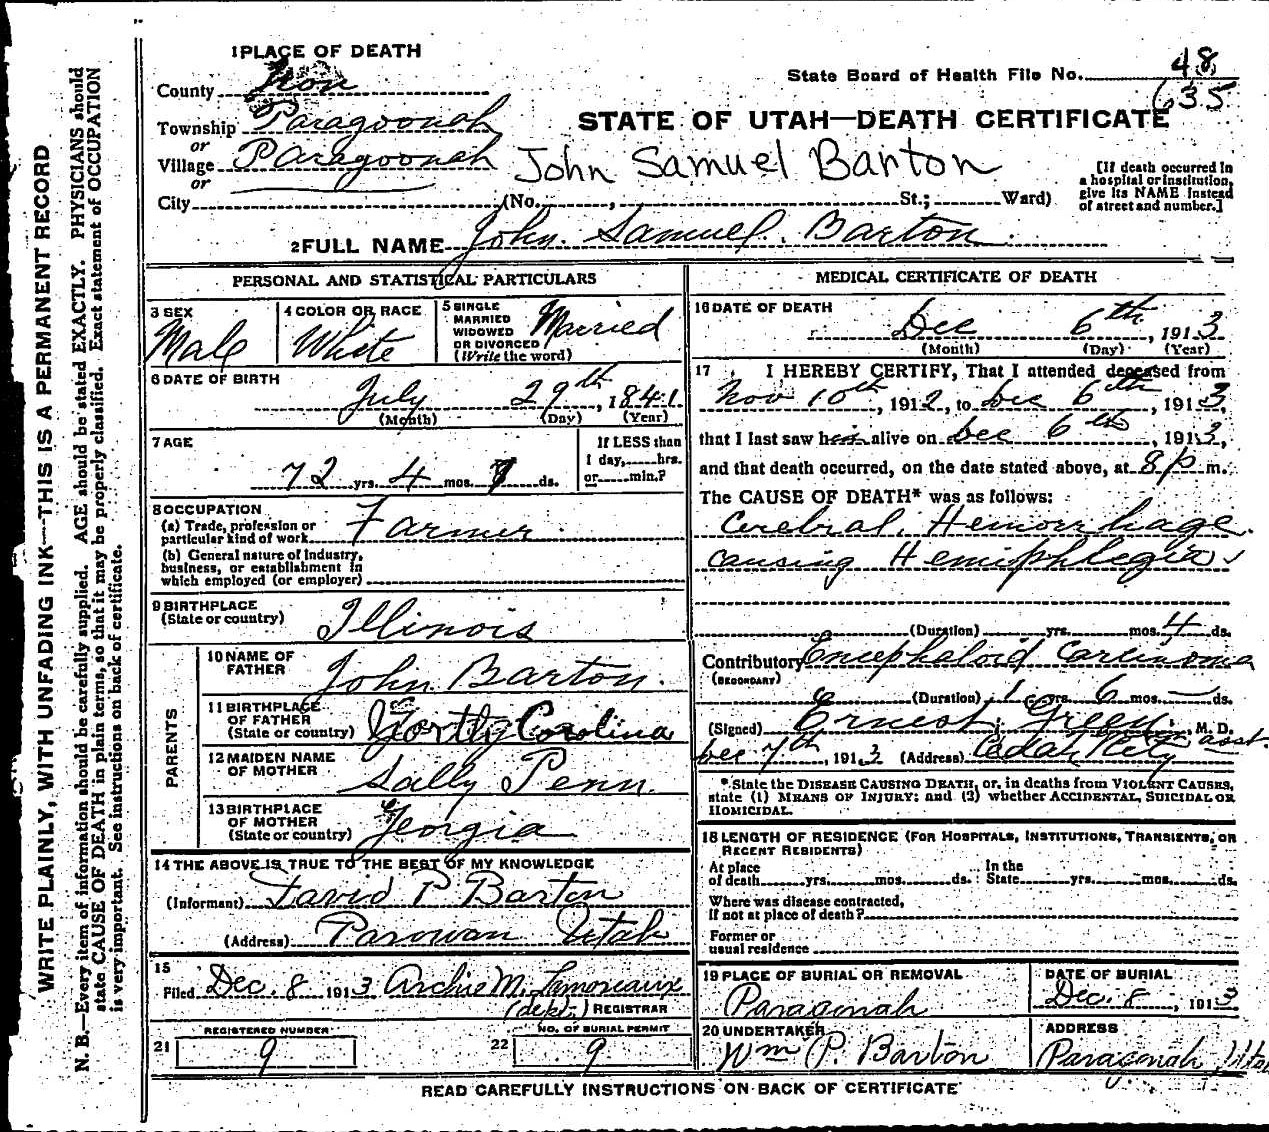 1 PLACE OF DEATH
County Iron
State Board of Health File No. 48
635
Township Paragoonah
or
STATE OF UTAH—DEATH CERTIFICATE
Village Paragoonah
John Samuel Barton
or
City (No. , St.; Ward)
[If death occurred in
a hospital or institution,
give its NAME instead
of street and number.]
2 FULL NAME John Samuel Barton
PERSONAL AND STATISTICAL PARTICULARS
3 SEX
Male
4 COLOR OR RACE
White
5 SINGLE
MARRIED
WIDOWED
OR DIVORCED
(Write the word)
Married
6 DATE OF BIRTH
July 29th, 1841
(Month) (Day) (Year)
7 AGE
72 yrs. 4 mos. 7 ds.
If LESS than
1 day, hrs.
or min.?
8 OCCUPATION
(a) Trade, profession or
particular kind of work Farmer
(b) General nature of Industry,
business, or establishment in
which employed (or employer)
9 BIRTHPLACE
(State or country) Illinois
PARENTS
10 NAME OF
FATHER John Barton.
11 BIRTHPLACE
OF FATHER
(State or country) North Carolina
12 MAIDEN NAME
OF MOTHER Sally Penn.
13 BIRTHPLACE
OF MOTHER
(State or country) Georgia
14 THE ABOVE IS TRUE TO THE BEST OF MY KNOWLEDGE
(Informant) David P Barton
(Address) Parowan Utah
15
Filed Dec. 8 1913 Archie M. Lamoreaux
(dept.) REGISTRAR
REGISTERED NUMBER
21 9
NO. OF BURIAL PERMIT
22 9
MEDICAL CERTIFICATE OF DEATH
16 DATE OF DEATH
Dec 6th, 1913
(Month) (Day) (Year)
17 I HEREBY CERTIFY, That I attended deceased from
Nov 10th, 1912, to Dec 6th, 1913,
that I last saw him alive on Dec 6th, 1913,
and that death occurred, on the date stated above, at 8 p m.
The CAUSE OF DEATH* was as follows:
Cerebral Hemorrhage.
causing Hemiphlegia
(Duration) yrs. mos. 4 ds.
Contributory Encephaloid Carcinoma
(SECONDARY)
(Duration) 1 yrs 6 mos. — ds.
(Signed) Ernest Green M. D.
asst.
Dec 7th, 1913 (Address) Cedar City
* State the DISEASE CAUSING DEATH, or, in deaths from VIOLENT CAUSES,
state (1) MEANS OF INJURY; and (2) whether ACCIDENTAL, SUICIDAL OR
HOMICIDAL.
18 LENGTH OF RESIDENCE (FOR HOSPITALS, INSTITUTIONS, TRANSIENTS, OR
RECENT RESIDENTS)
At place In the
of death yrs. mos. ds. State yrs. mos. ds.
Where was disease contracted,
If not at place of death?
Former or
usual residence
19 PLACE OF BURIAL OR REMOVAL
Paragonah
DATE OF BURIAL
Dec. 8, 1913
20 UNDERTAKER
Wm P. Barton
ADDRESS
Paragonah Utah
READ CAREFULLY INSTRUCTIONS ON BACK OF CERTIFICATE
WRITE PLAINLY, WITH UNFADING INK—THIS IS A PERMANENT RECORD
N. B.—Every item of information should be carefully supplied. AGE should be stated EXACTLY. PHYSICIANS should
state CAUSE OF DEATH in plain terms, so that it may be properly classified. Exact statement of OCCUPATION
is very important. See instructions on back of certificate.